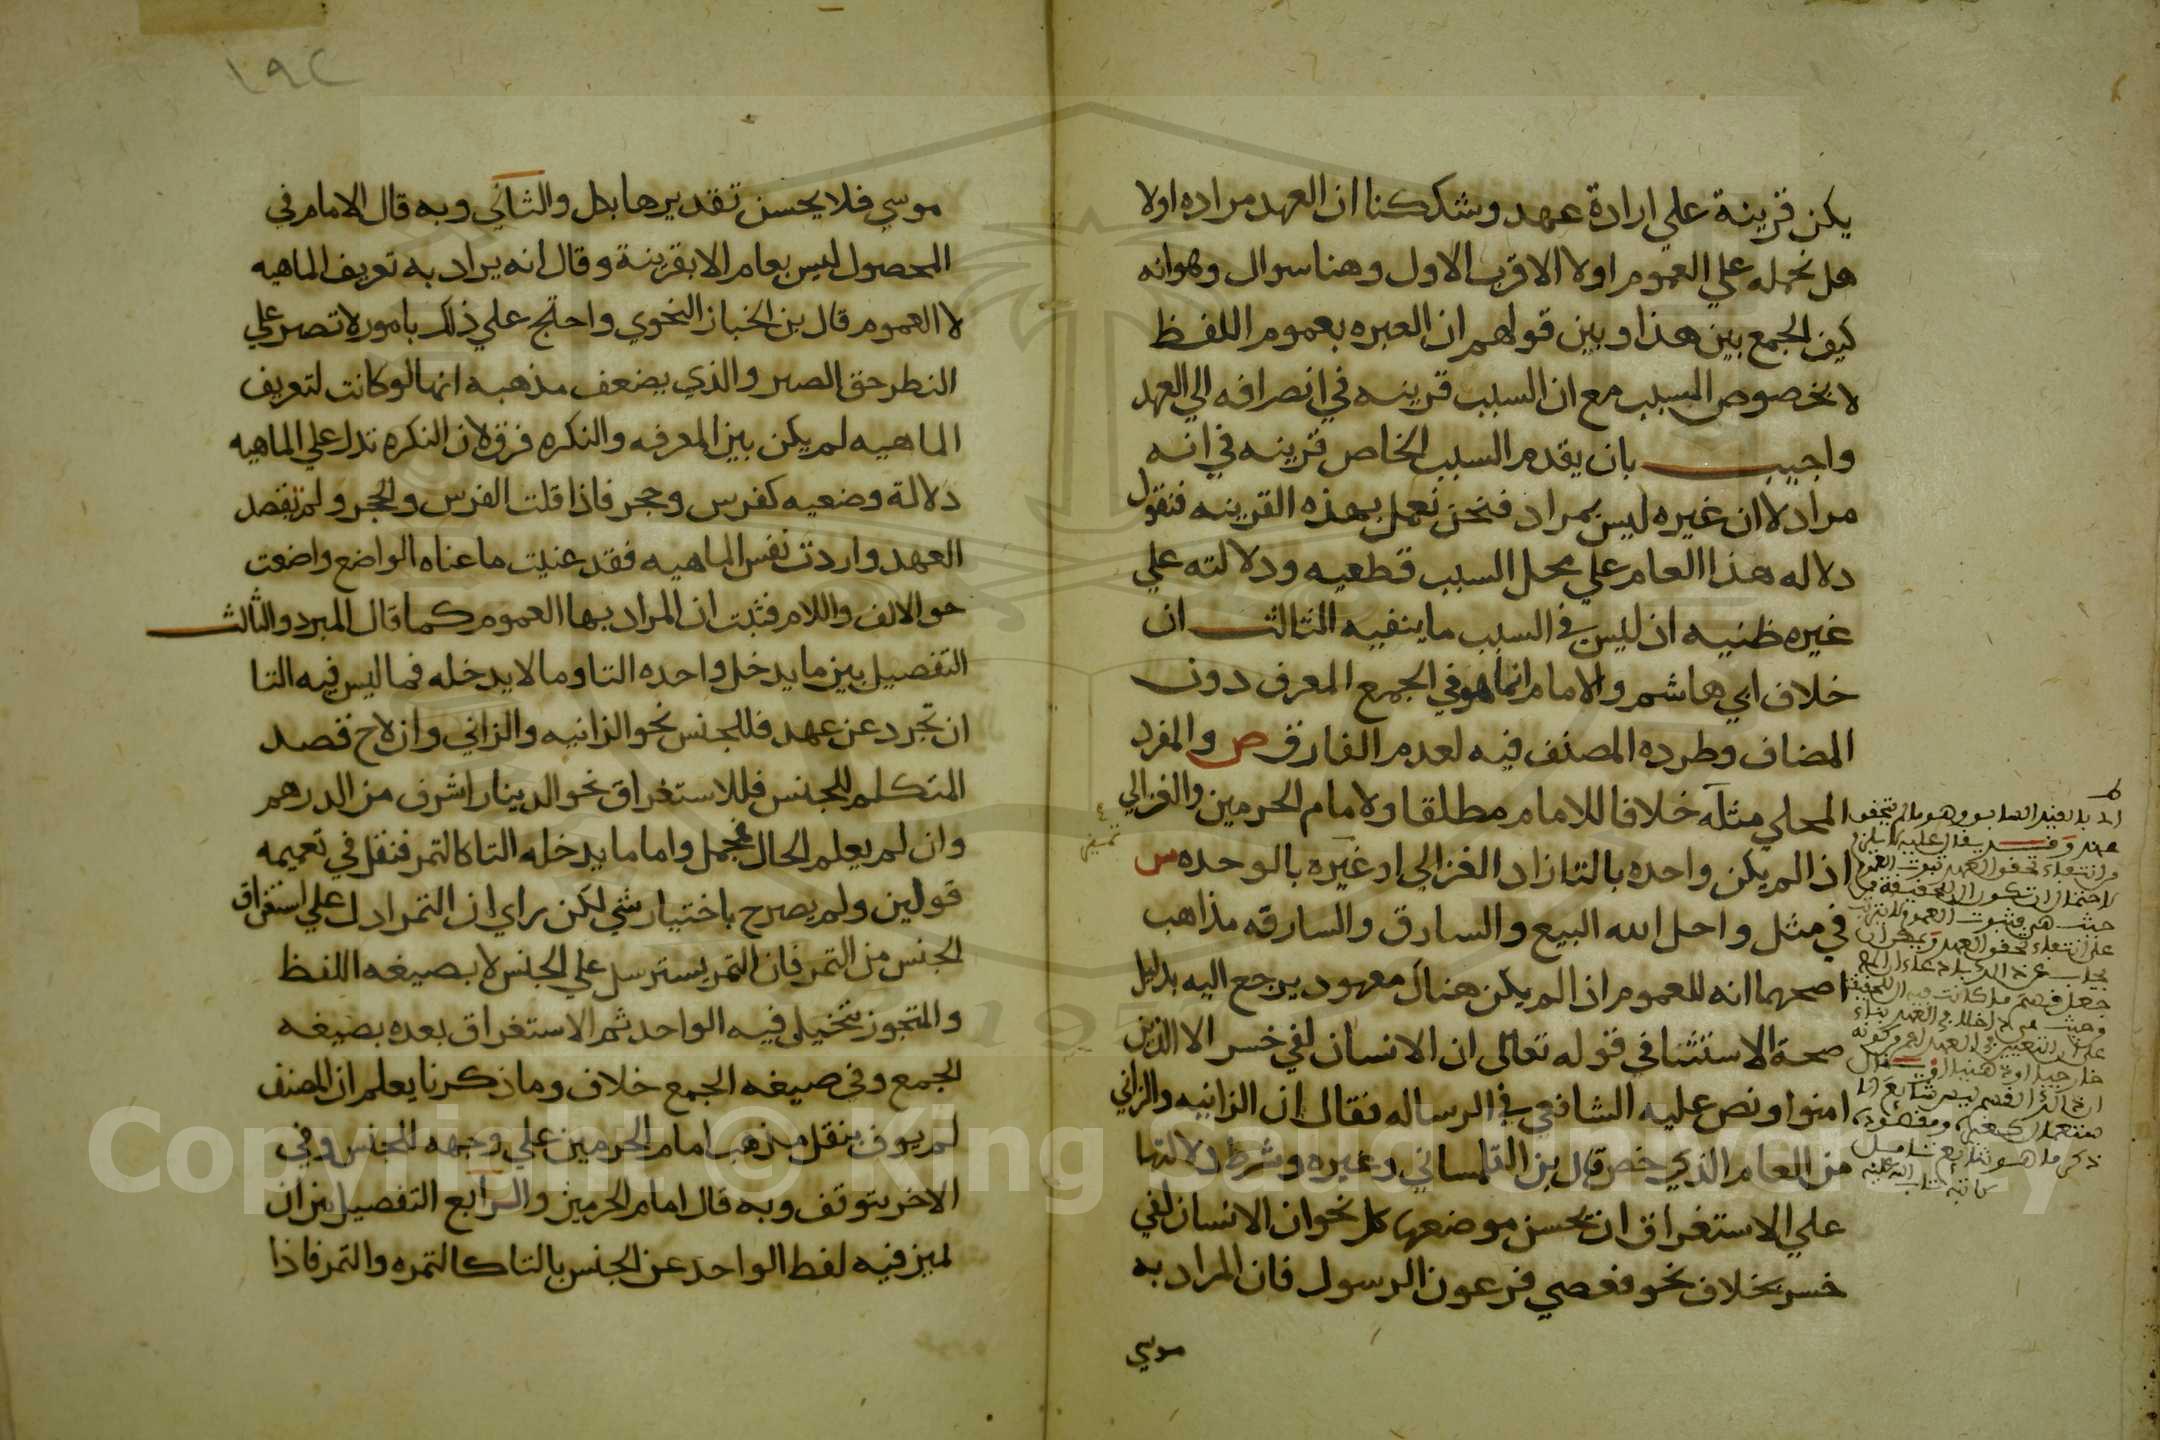 يكن قرينة علي ارادة عهد وشككنا ان العهد مراده اولا
هل نحمله علي العموم اولا الاقرب الاول وهنا سوال وهوانه
كيف الجمع بين هذا وبين قولهم ان العبره بعموم اللفظ
لا بخصوص السبب مع ان السبب قرينه في انصرافه الي العهد
واجيب بان يقدم السبب الخاص قرينه في انه
مراد لا ان غيره ليس بمراد فنحن نعمل بهذه القرينه فنقول
دلاله هذا العام علي محل السبب قطعيه ودلالته علي
غيره ظنيه اذ ليس في السبب ما ينفيه الثالث ان
خلاف ابي هاشم والامام انما هو في الجمع المعرف دون
المضاف وطرده المصنف فيه لعدم الفارق ص والمفرد
المحلي مثله خلافا للامام مطلقا ولامام الحرمين والغزالي
اذا لم يكن واحده بالتا زاد الغزالي او غيره بالوحده س
في مثل واحل الله البيع والسارق والسارقه مذاهب
اصحهما انه للعموم اذا لم يكن هناك معهود يرجع اليه بدليل
صحة الاستثنا في قوله تعالى ان الانسان لفي خسر الا الذين
امنوا ونص عليه الشافعي في الرساله فقال ان الزانيه والزاني
من العام الذي خص قال بن التلمساني وغيره وشرط دلالتها
علي الاستغراق ان يحسن موضعها كل نحو ان الانسان لفي
خسر بخلاف نحو فعصي فرعون الرسول فان المراد به
موسي
١٩٢
موسي فلا يحسن تقديرها بكل والثاني وبه قال الامام في
المحصول ليس بعام الا بقرينة وقال انه يراد به تعريف الماهيه
لا العموم قال بن الخباز النحوي واحتج علي ذلك بامور لا تصبر علي
النظر حق الصبر والذي يضعف مذهبه انها لو كانت لتعريف
الماهيه لم يكن بين المعرفه والنكره فرق لان النكره تدل علي الماهيه
دلالة وضعيه كفرس وحجر فاذا قلت الفرس والحجر ولم تقصد
العهد واردت نفس الماهيه فقد عنيت ما عناه الواضع واضعت
حو الالف واللام فثبت ان المراد بها العموم كما قال المبرد والثالث
التفصيل بين ما يدخل واحده التا وما لا يدخله فما ليس فيه التا
ان تجرد عن عهد فللجنس نحو الزانيه والزاني وان لاح قصد
المتكلم للجنس فللاستغراق نحو الدينار اشرف من الدرهم
وان لم يعلم الحال فمجمل واما ما يدخله التا كالتمر فنقل في تعميمه
قولين ولم يصرح باختيار شي لكن راي ان التمر ادل علي استغراق
الجنس من التمر فان التمر يسترسل علي الجنس لا بصيغه اللفظ
والمتجوز يتخيل فيه الواحد ثم الاستغراق بعده بصيغه
الجمع وفي صيغه الجمع خلاف وما ذكرنا يعلم ان المصنف
لم يوف بنقل مذهب امام الحرمين علي وجهه للجنس وفي
الاخر يتوقف وبه قال امام الحرمين والرابع التفصيل من ان
لميز فيه لفظ الواحد عن الجنس بالتا كالتمره والتمر فاذا
Copyright © King Saud University